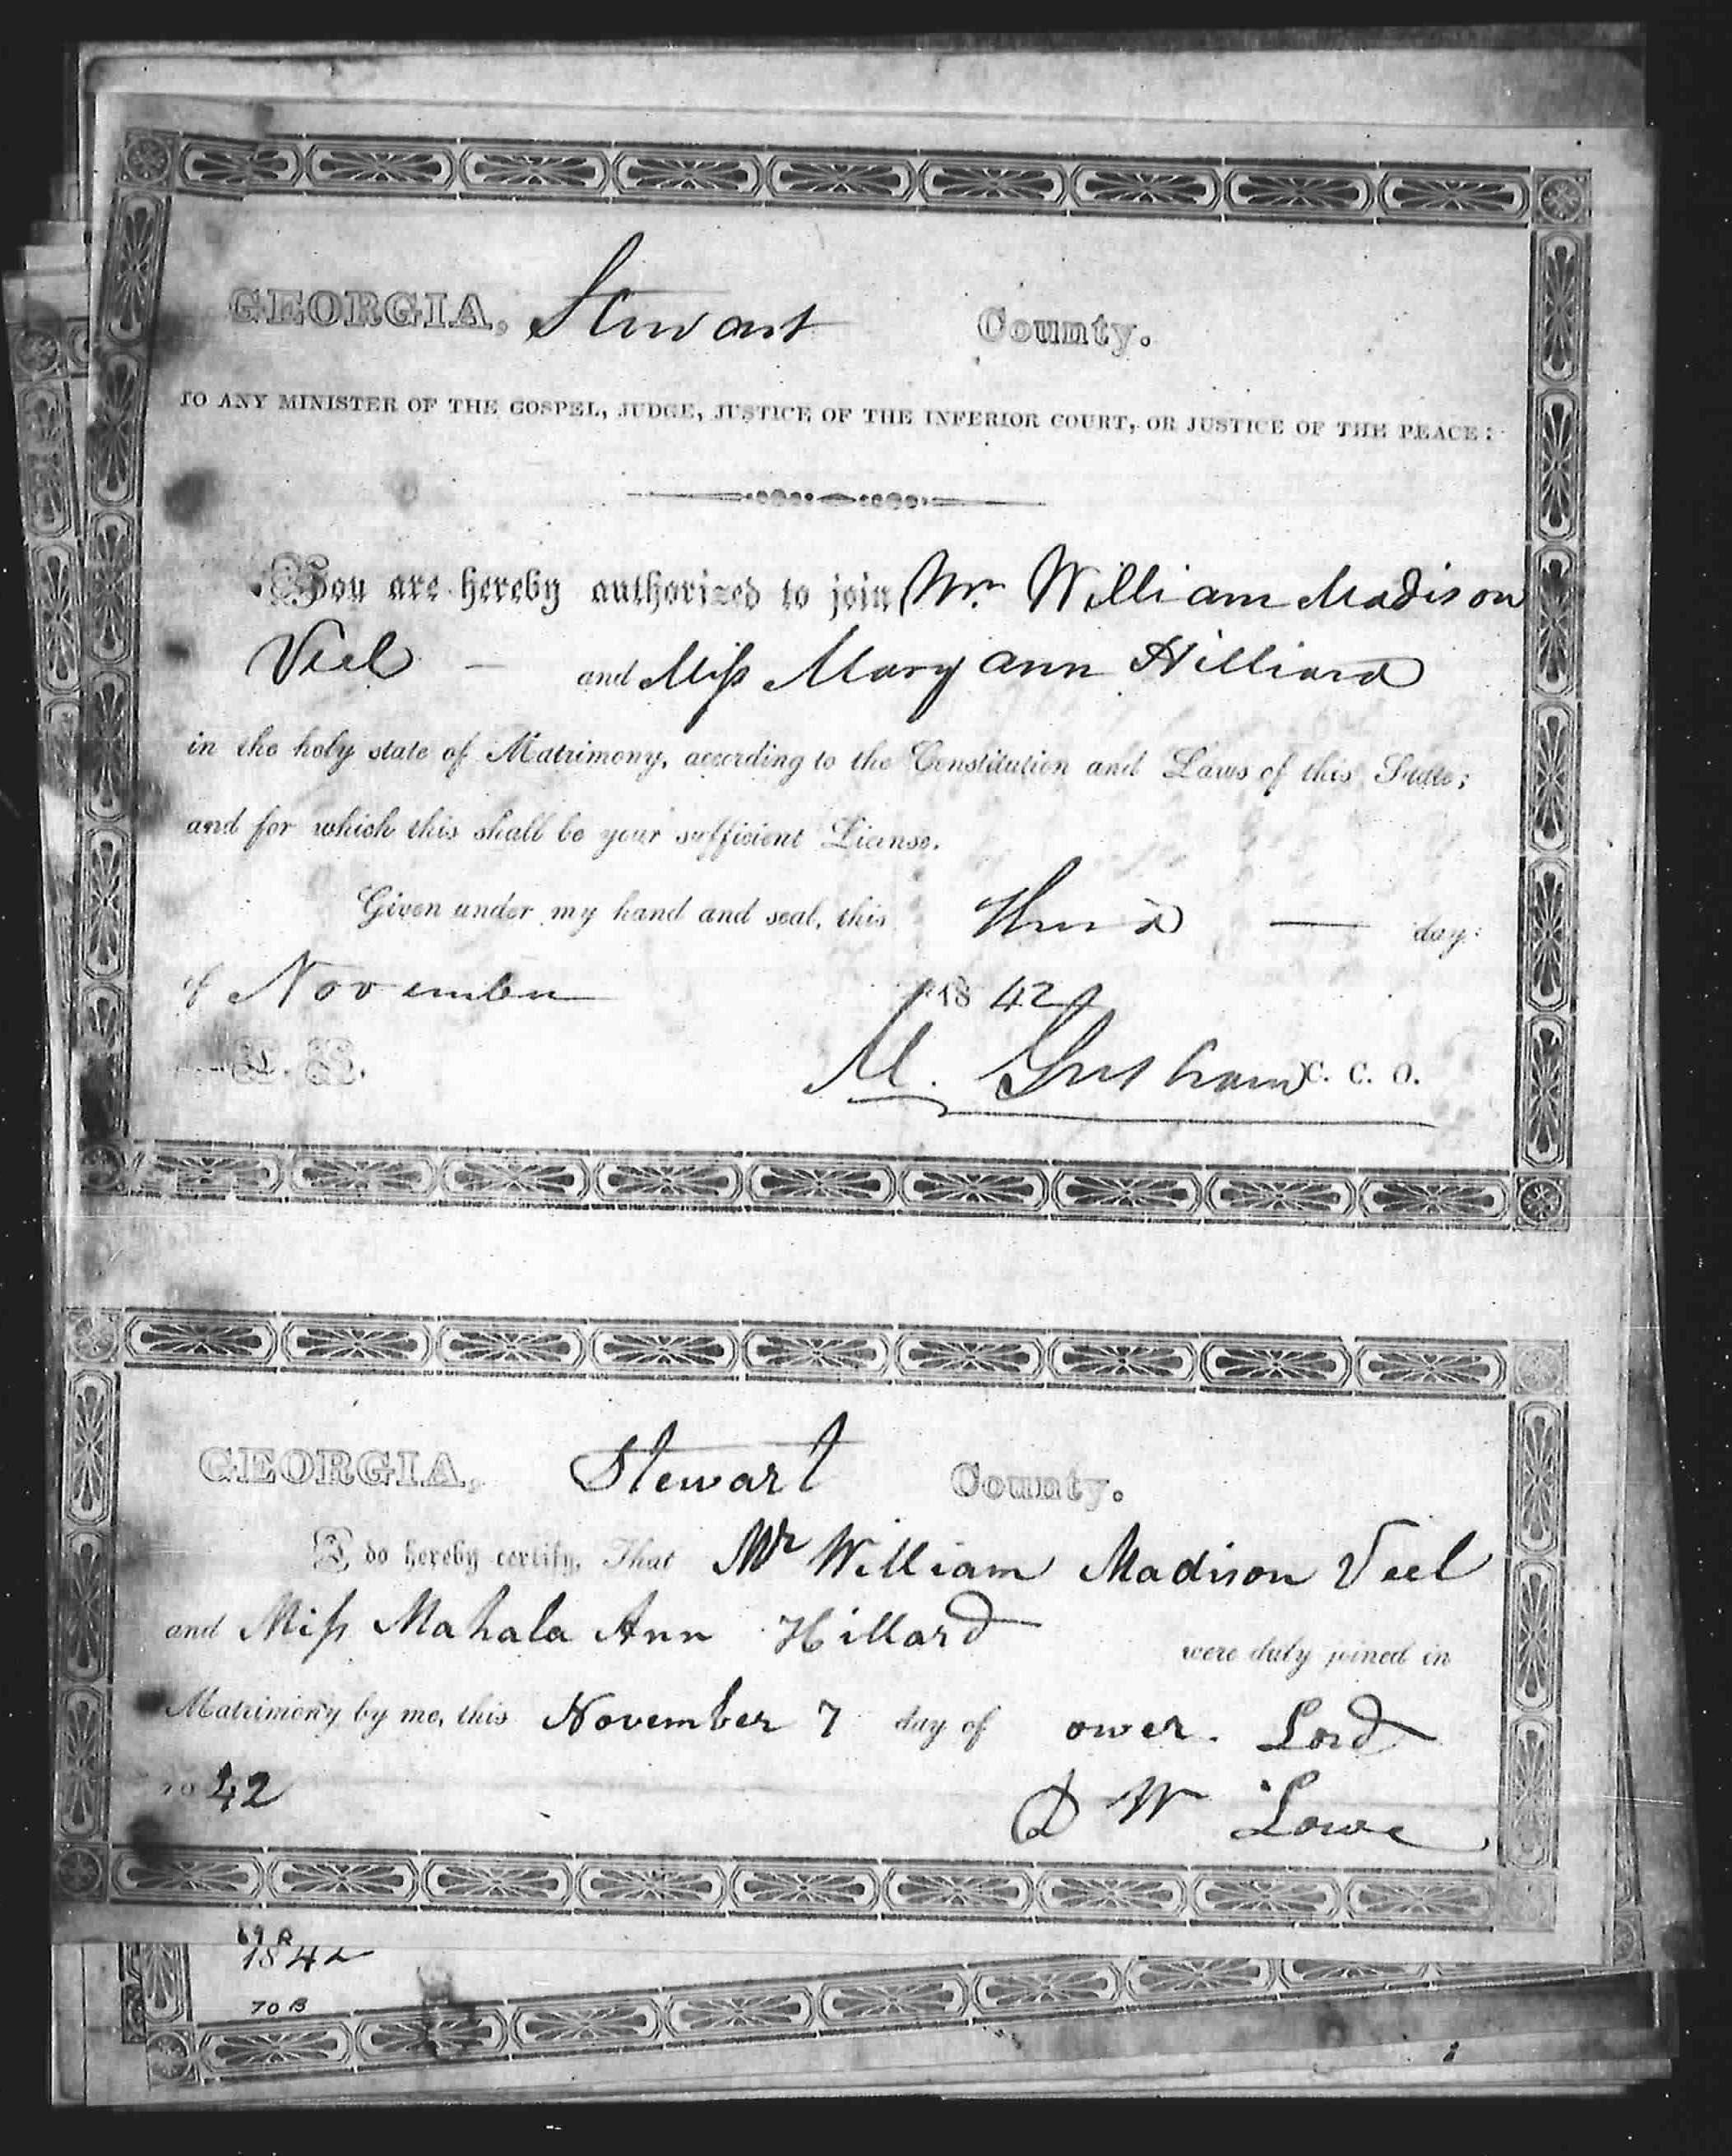 GEORGIA, Stewart County.
TO ANY MINISTER OF THE GOSPEL, JUDGE, JUSTICE OF THE INFERIOR COURT, OR JUSTICE OF THE PEACE:
You are hereby authorized to join Mr. William Madison
Veel — and Miss Mary Ann Hilliard
in the holy state of Matrimony, according to the Constitution and Laws of this State;
and for which this shall be your sufficient License.
Given under my hand and seal, this third — day
of November 1842
L. S. M. Gresham C. C. O.
GEORGIA, Stewart County.
I, do hereby certify, That Mr William Madison Veel
and Miss Mahala Ann Hillard were duly joined in
Matrimony by me, this November 7 day of ower. Lord
42 D W Lowe
69 B
1842
70 B